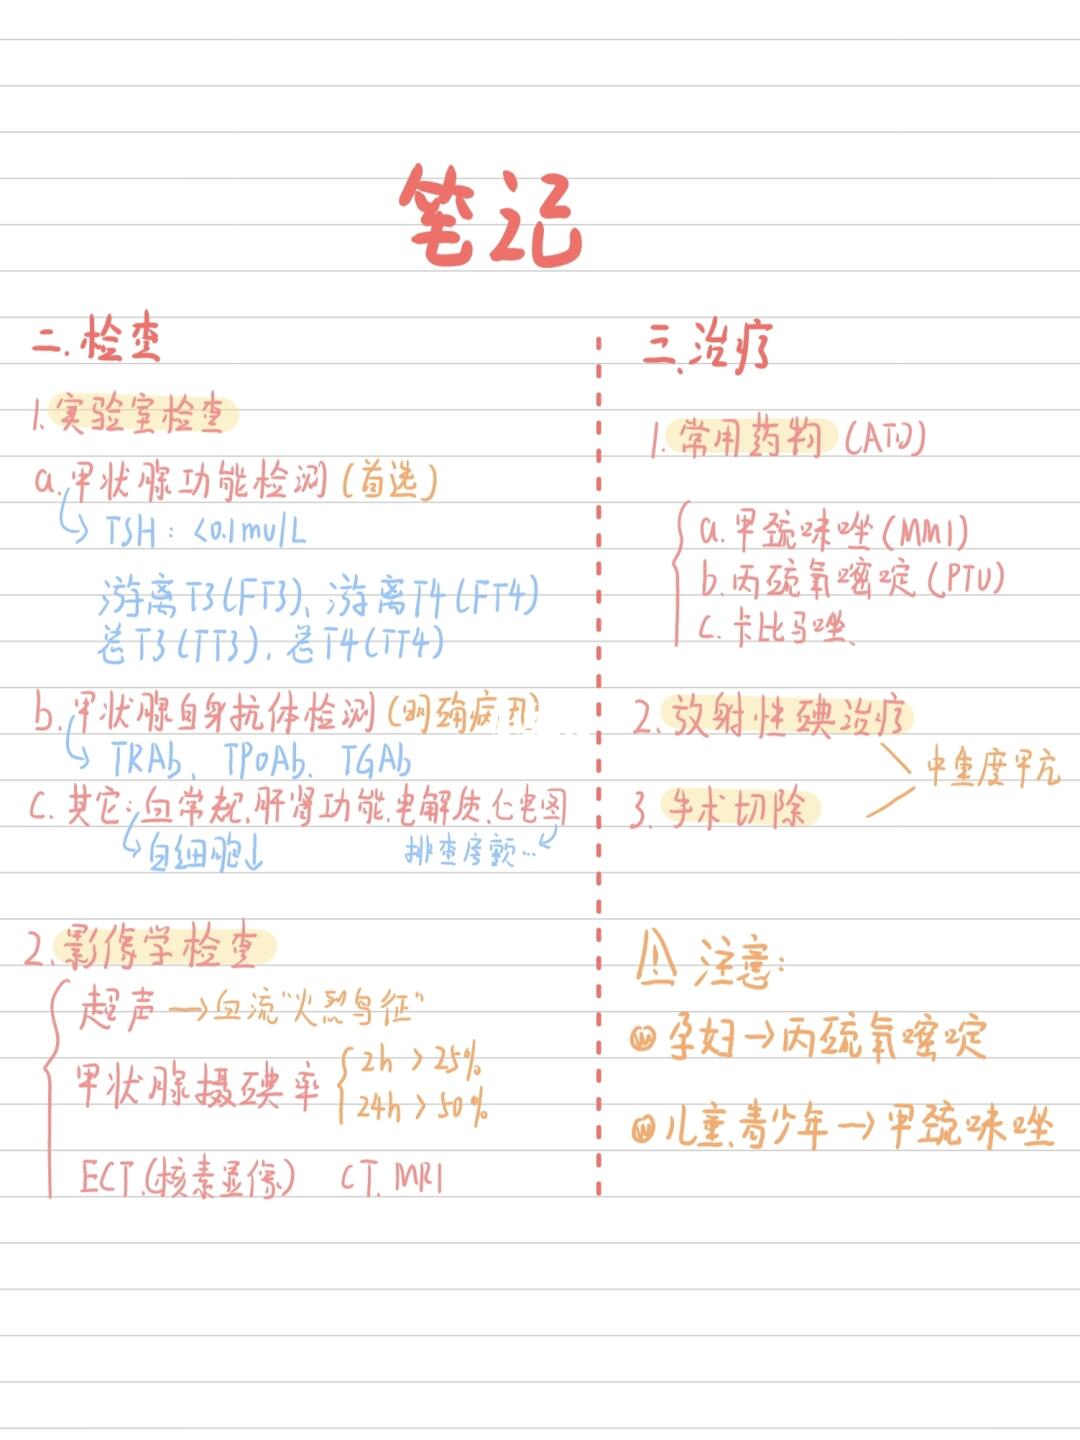 笔记
二.检查
1.实验室检查
a.甲状腺功能检测(首选)
TSH:<0.1mu/L
游离T3(FT3)、游离T4(FT4)
总T3(TT3)、总T4(TT4)
b.甲状腺自身抗体检测(明确病因)
TRAb、TPOAb、TGAb
c.其它:血常规.肝肾功能.电解质.心电图
白细胞↓
排查房颤…
2.影像学检查
超声→血流"火烈鸟征"
甲状腺摄碘率
2h>25%
24h>50%
ECT.(核素显像) CT.MRI
三.治疗
1.常用药物(ATD)
a.甲巯咪唑(MMI)
b.丙硫氧嘧啶(PTU)
c.卡比马唑、
2.放射性碘治疗
中重度甲亢
3.手术切除
注意:
孕妇→丙硫氧嘧啶
儿童、青少年→甲巯咪唑